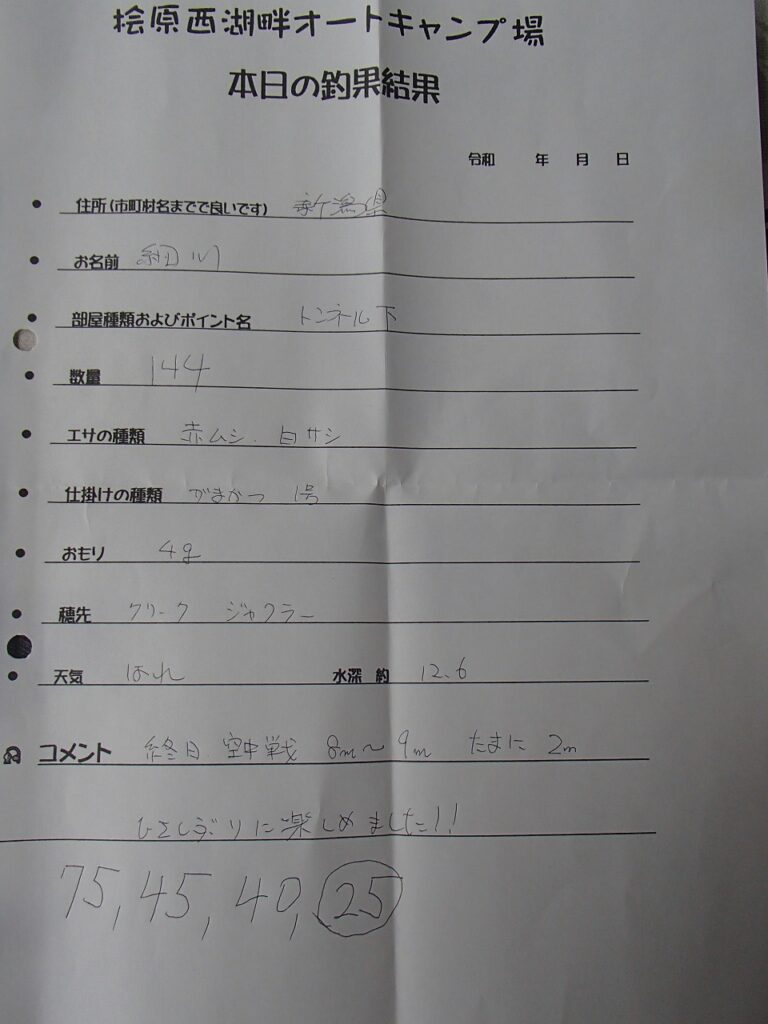 桧原西湖畔オートキャンプ場
本日の釣果結果
令和 年 月 日
住所(市町村名までで良いです) 新潟県
お名前 細川
部屋種類およびポイント名 トンネル下
数量 144
エサの種類 赤ムシ、白サシ
仕掛けの種類 がまかつ 1号
おもり 4g
穂先 クリーク ジャクラー
天気 はれ 水深 約 12.6
コメント 終日、空中戦 8m~9m たまに 2m
ひさしぶりに楽しめました!!
75, 45, 40, 25